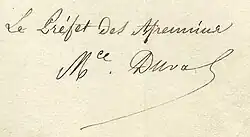 Le Préfet des Apennins
Mce. Duval